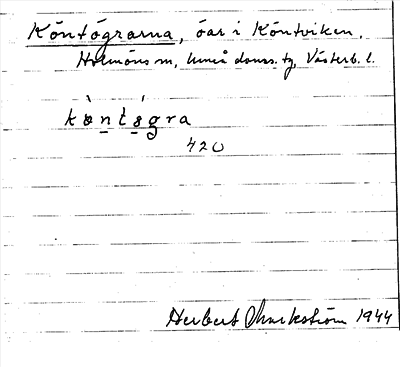 Köntögrarna, öar i Köntviken,
Holmöns sn, Umeå domss. tg, Västerb. l.
kö̀ntǿgra
420
Herbert Markström 1944